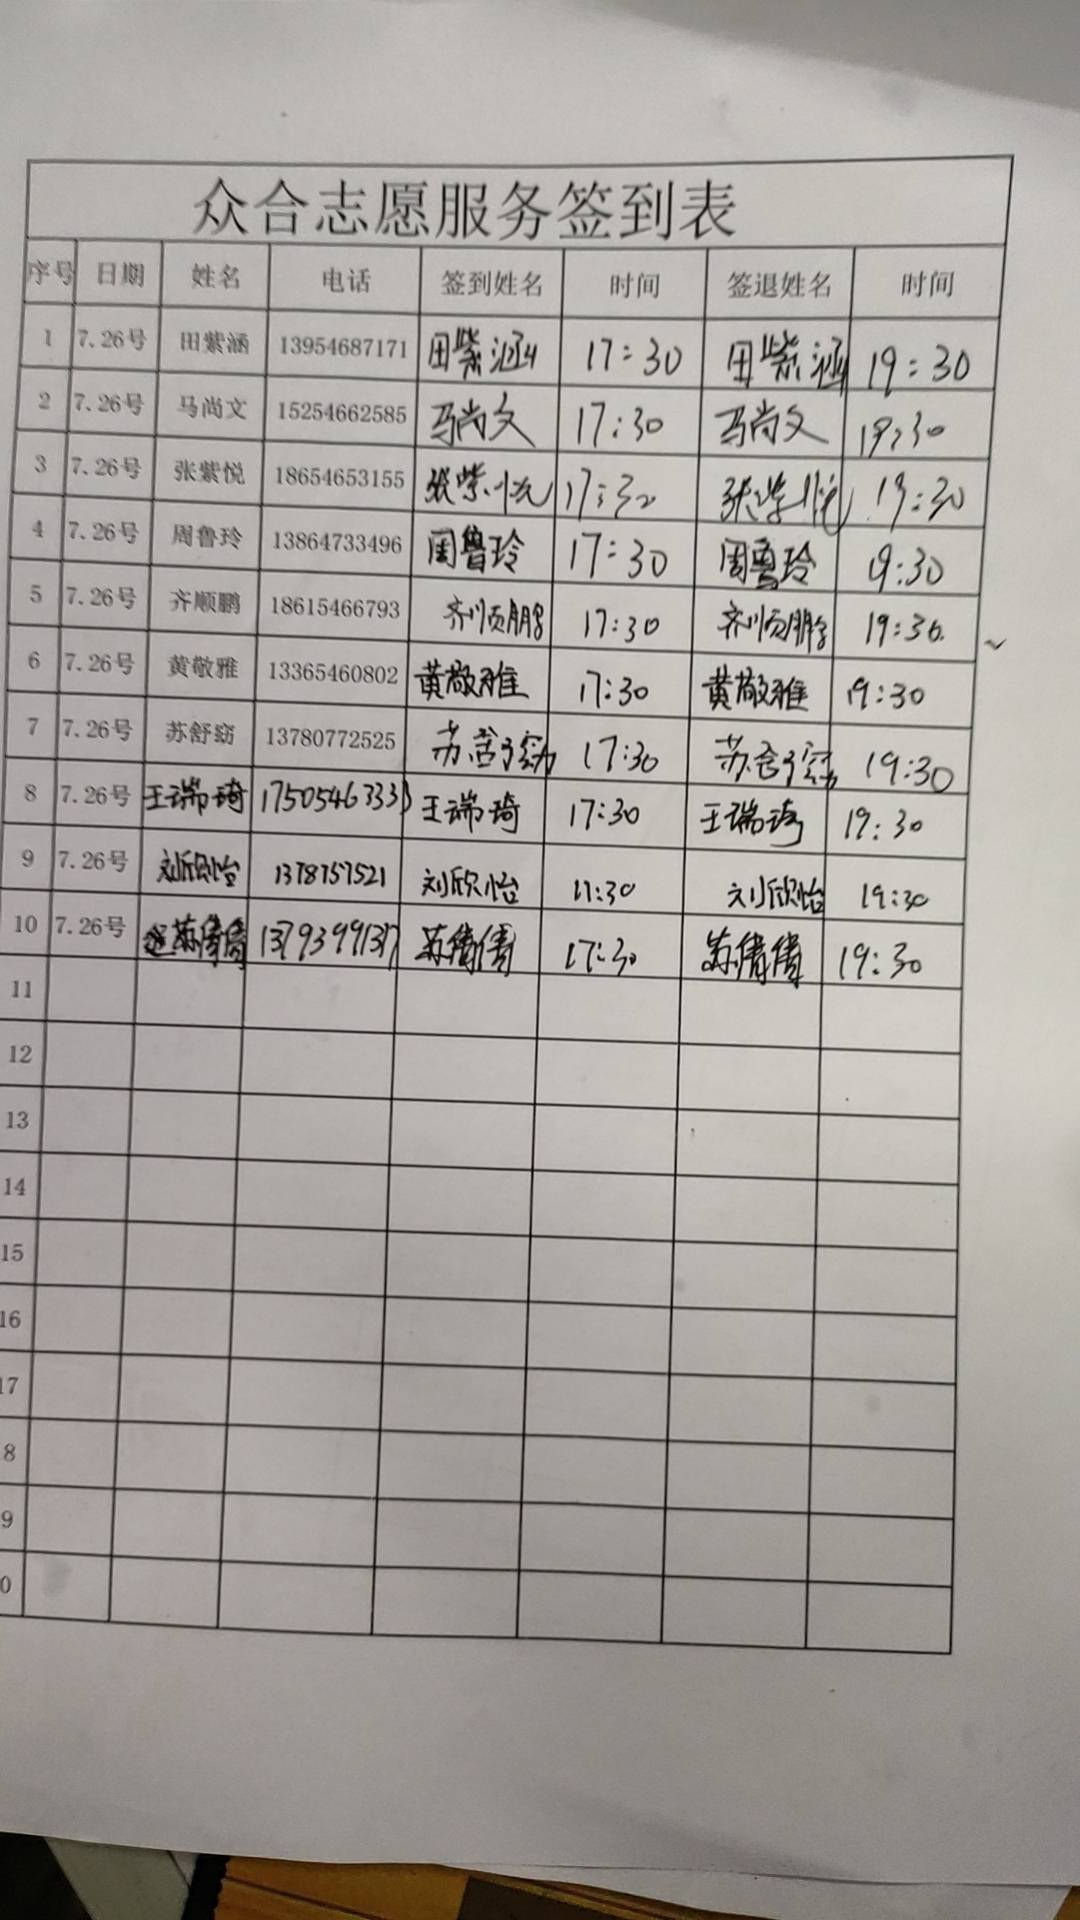 众合志愿服务签到表
序号 日期 姓名 电话 签到姓名 时间 签退姓名 时间
1 7.26号 田紫涵 13954687171 田紫涵 17:30 田紫涵 19:30
2 7.26号 马尚文 15254662585 马尚文 17:30 马尚文 19:30
3 7.26号 张紫悦 18654653155 张紫悦 17:30 张紫悦 19:30
4 7.26号 周鲁玲 13864733496 周鲁玲 17:30 周鲁玲 19:30
5 7.26号 齐顺鹏 18615466793 齐顺鹏 17:30 齐顺鹏 19:30
6 7.26号 黄敬雅 13365460802 黄敬雅 17:30 黄敬雅 19:30
7 7.26号 苏舒窈 13780772525 苏舒窈 17:30 苏舒窈 19:30
8 7.26号 王瑞琦 王瑞琦 17:30 王瑞琦 19:30
9 7.26号 刘欣怡 刘欣怡 17:30 刘欣怡 19:30
10 7.26号 苏倩倩 苏倩倩 17:30 苏倩倩 19:30
11
12
13
14
15
16
17
8
9
0